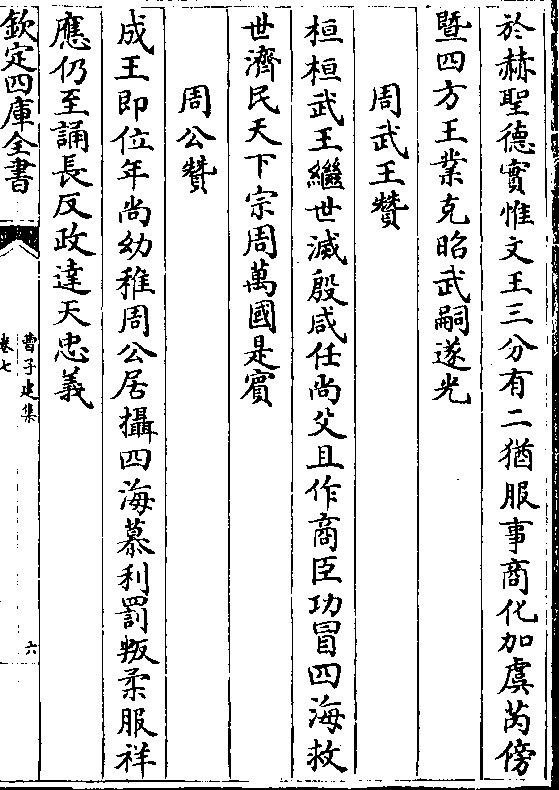 於赫聖德實惟文王三分有二猶服事商化加虞芮傍
暨四方王業克昭武嗣遂光
周武王贊
桓桓武王繼世滅殷咸任尚父且作商臣功冒四海救
世濟民天下宗周萬國是賓
周公贊
成王即位年尚幼稚周公居攝四海慕利罰叛柔服祥
應仍至誦長反政達天忠義
欽定四庫全書
曹子建集
卷七
六